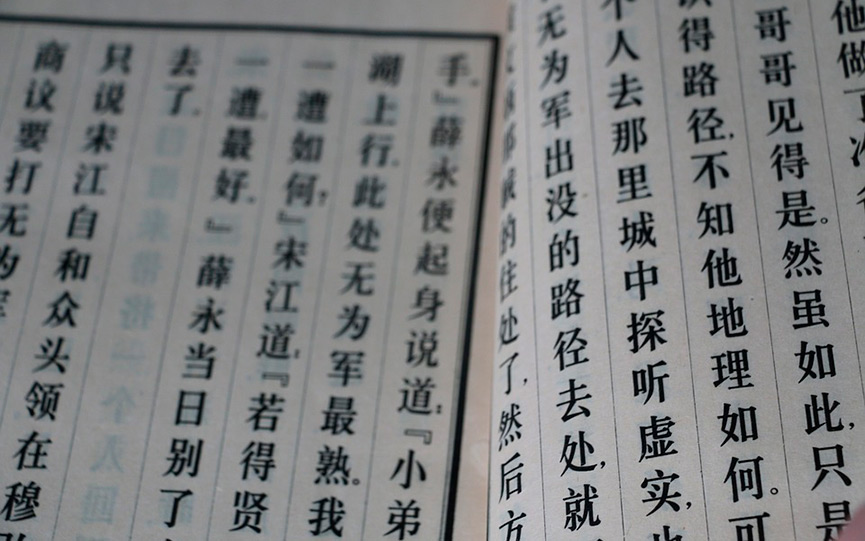 他做了
哥哥见得是。然虽如此,只是
识得路径,不知他地理如何。可
个人去那里城中探听虚实,也
无为军出没的路径去处,就
的住处了,然后方
手。』薛永便起身说道:『小弟
湖上行。此处无为军最熟。我
一遭如何?』宋江道:『若得贤
一遭最好。』薛永当日别了
去了。
只说宋江自和众头领在穆
商议要打无为军